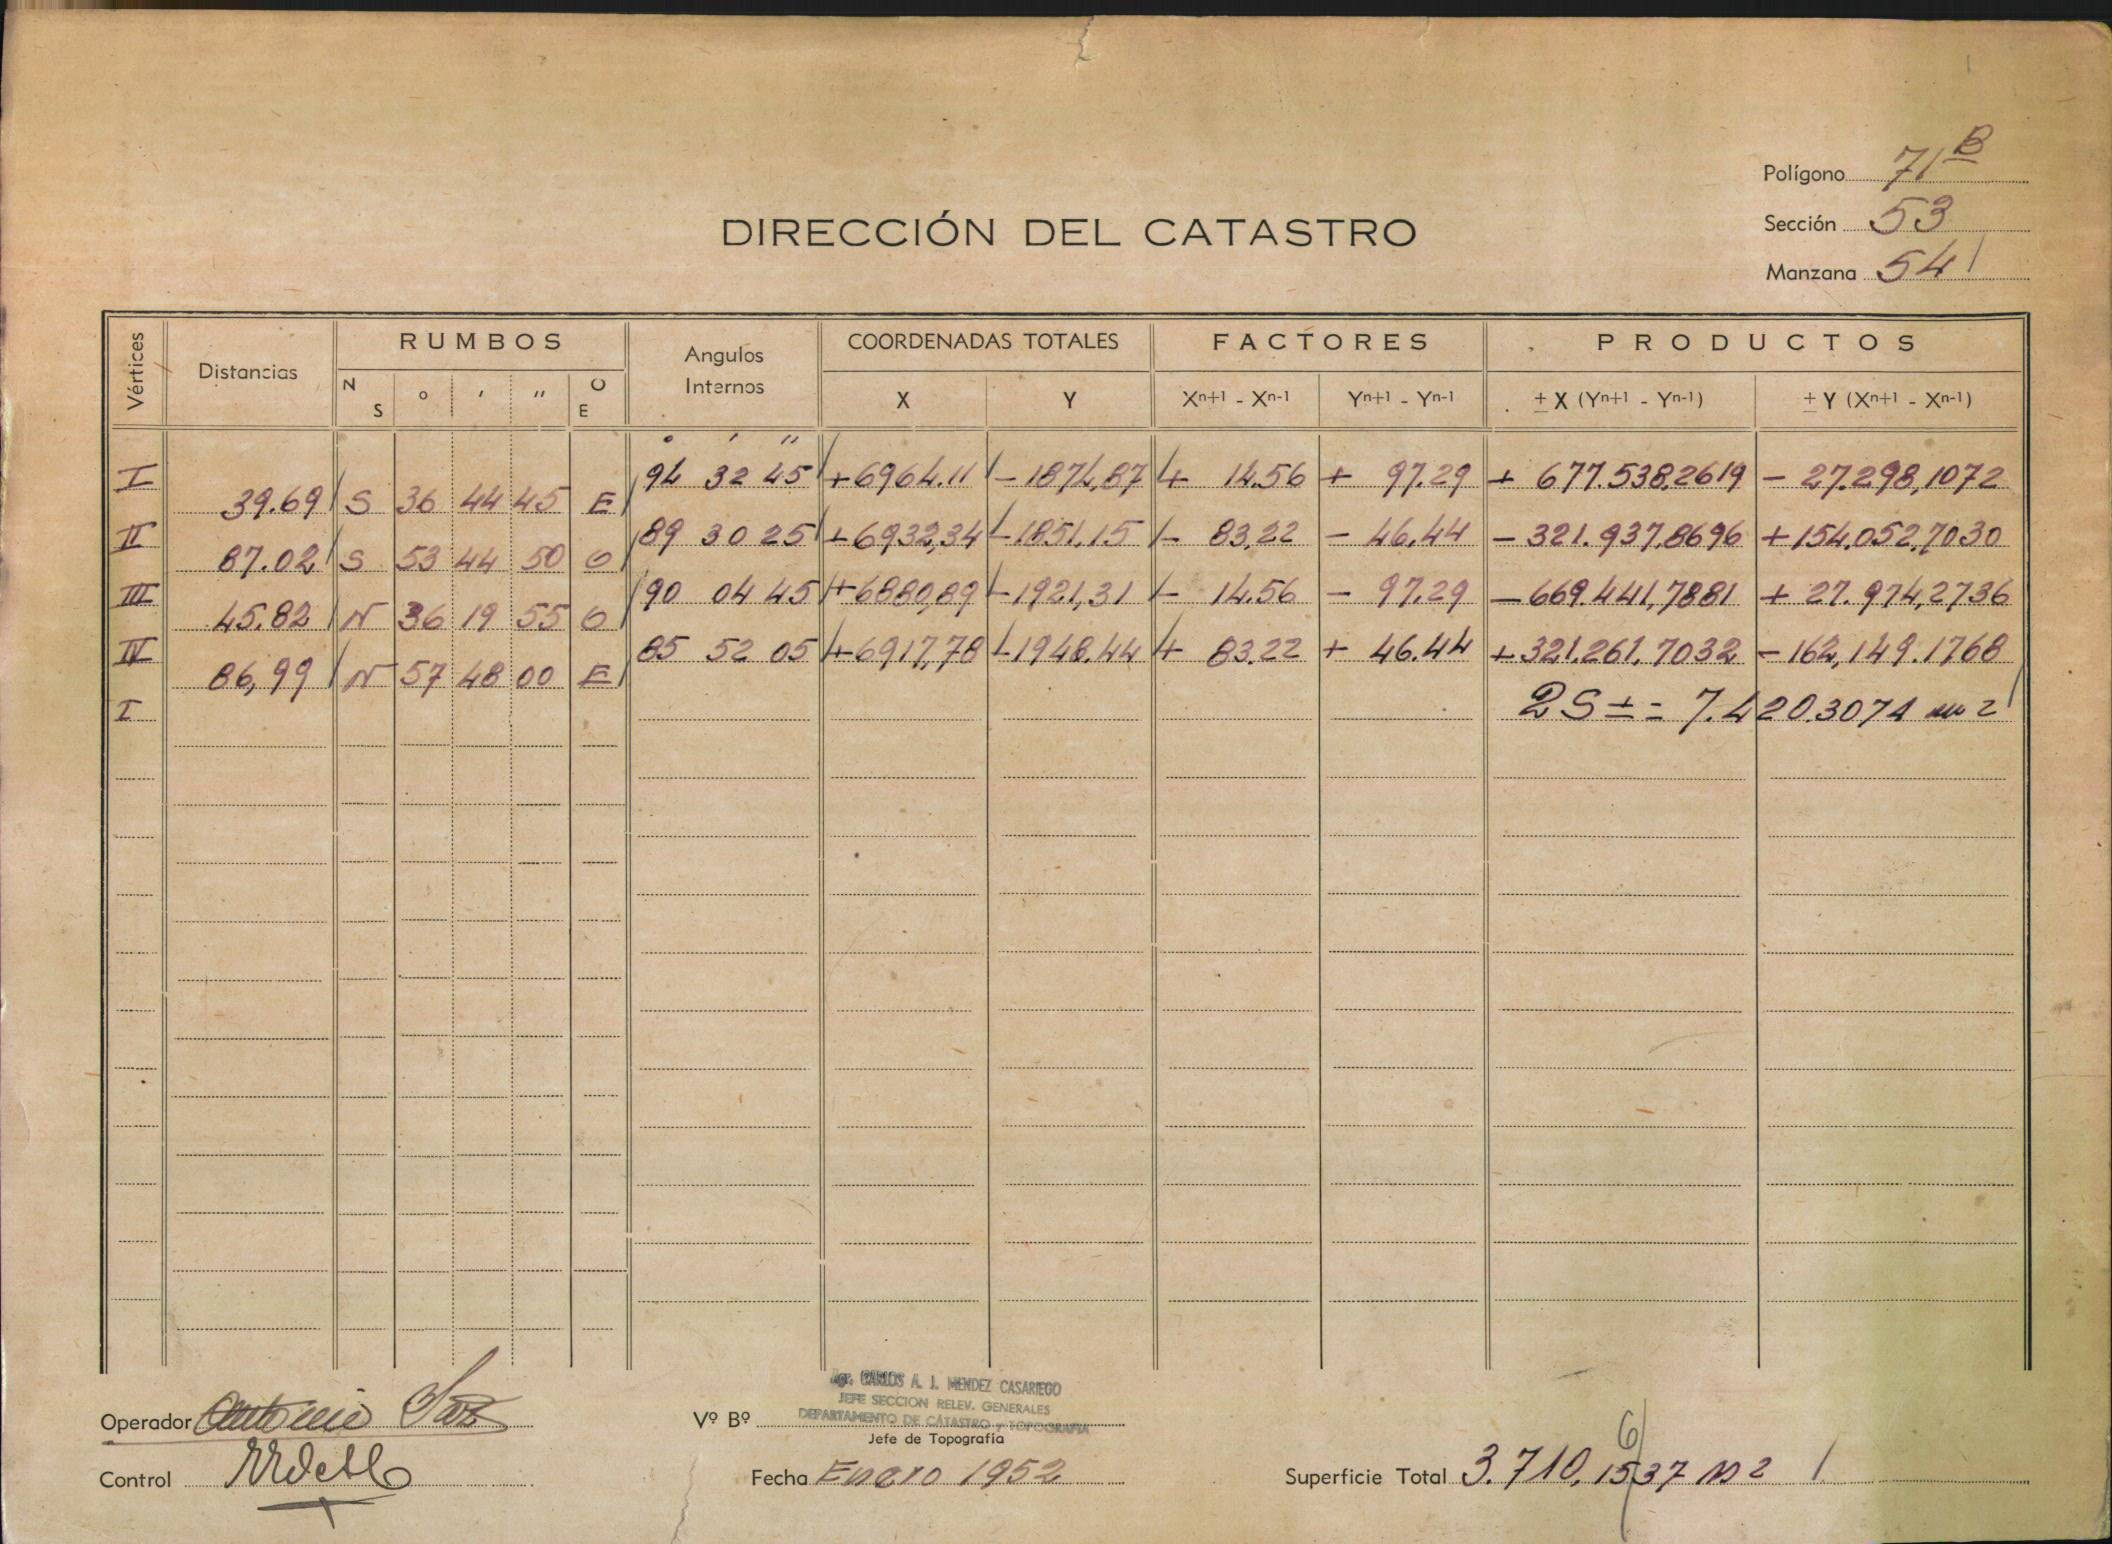 Polígono 71 B
DIRECCIÓN DEL CATASTRO
Sección 53
Manzana 541
Vértices
Distancias
RUMBOS
N S ° ' " O E
Angulos Internos
COORDENADAS TOTALES
X Y
FACTORES
Xn+1 - Xn-1 Yn+1 - Yn-1
PRODUCTOS
± X (Yn+1 - Yn-1) ± Y (Xn+1 - Xn-1)
° ' "
I 94 32 45 +6964.11 -1874,87 + 14.56 + 97.29 + 677.538,2619 - 27.298,1072
39.69 S 36 44 45 E
II 89 30 25 +6932,34 -1851,15 - 83,22 - 46.44 - 321.937,8696 +154.052,7030
87.02 S 53 44 50 O
III 90 04 45 +6880,89 -1921,31 - 14.56 - 97.29 - 669.441,7881 + 27.974,2736
45.82 N 36 19 55 O
IV 85 52 05 +6917,78 -1948.44 + 83.22 + 46.44 +321.261.7032 -162,149.1768
86,99 N 57 48 00 E
I 2S ± = 7.420.3074 m 2
Agr. CARLOS A. J. MENDEZ CASARIEGO
JEFE SECCION RELEV. GENERALES
DEPARTAMENTO DE CATASTRO y TOPOGRAFIA
Operador Antonio
Vº Bº
Jefe de Topografía
Control
Fecha Enero 1952
6
Superficie Total 3.710,1537 m 2